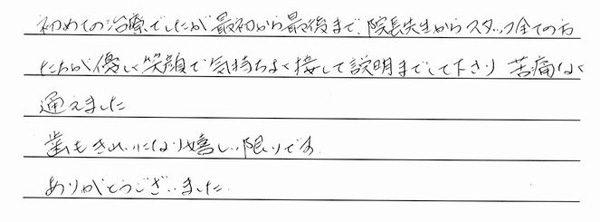 初めての治療でしたが最初から最後まで、院長先生からスタッフ全ての方
たちが優しく笑顔で気持ちよく接して説明までして下さり 苦痛なく
通えました
歯もきれいになり嬉しい限りです
ありがとうございました